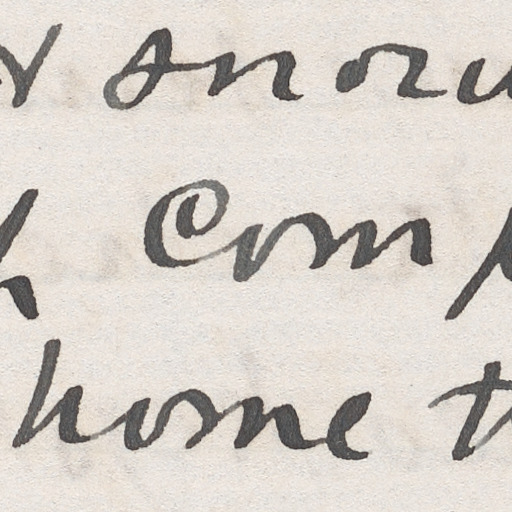 snow
Comp
home t